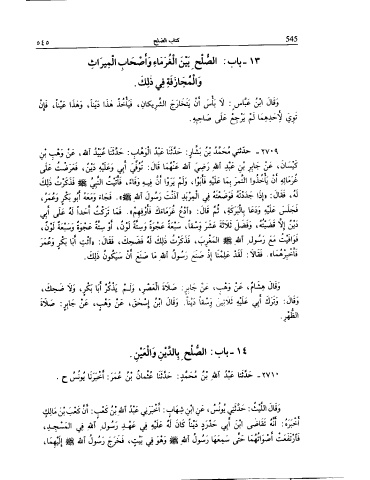 545 كتاب الصلح ٥٤٥
١٣ - باب: الصُّلْحِ بَيْنَ الْغُرَمَاءِ وَأَصْحَابِ الْمِيرَاثِ
وَالْمُجَازَفَةِ فِي ذَلِكَ.
وَقَالَ ابْنُ عَبَّاسٍ: لَا بَأْسَ أَنْ يَتَخَارَجَ الشَّرِيكَانِ، فَيَأْخُذَ هَذَا دَيْنًا، وَهَذَا عَيْنًا، فَإِنْ
تَوِيَ لِأَحَدِهِمَا لَمْ يَرْجِعْ عَلَى صَاحِبِهِ.
٢٧٠٩ - حدثني مُحَمَّدُ بْنُ بَشَّارٍ: حَدَّثَنَا عَبْدُ الْوَهَّابِ: حَدَّثَنَا عُبَيْدُ اللهِ، عَنْ وَهْبِ بْنِ
كَيْسَانَ، عَنْ جَابِرِ بْنِ عَبْدِ اللهِ رَضِيَ اللهُ عَنْهُمَا قَالَ: تُوُفِّيَ أَبِي وَعَلَيْهِ دَيْنٌ، فَعَرَضْتُ عَلَى
غُرَمَائِهِ أَنْ يَأْخُذُوا التَّمْرَ بِمَا عَلَيْهِ فَأَبَوْا، وَلَمْ يَرَوْا أَنَّ فِيهِ وَفَاءً، فَأَتَيْتُ النَّبِيَّ ﷺ فَذَكَرْتُ ذَلِكَ
لَهُ، فَقَالَ: «إِذَا جَدَدْتَهُ فَوَضَعْتَهُ فِي الْمِرْبَدِ آذَنْتَ رَسُولَ اللهِ ﷺ». فَجَاءَ وَمَعَهُ أَبُو بَكْرٍ وَعُمَرُ،
فَجَلَسَ عَلَيْهِ وَدَعَا بِالْبَرَكَةِ، ثُمَّ قَالَ: «ادْعُ غُرَمَاءَكَ فَأَوْفِهِمْ». فَمَا تَرَكْتُ أَحَدًا لَهُ عَلَى أَبِي
دَيْنٌ إِلَّا قَضَيْتُهُ، وَفَضَلَ ثَلَاثَةَ عَشَرَ وَسْقًا، سَبْعَةٌ عَجْوَةٌ وَسِتَّةٌ لَوْنٌ، أَوْ سِتَّةٌ عَجْوَةٌ وَسَبْعَةٌ لَوْنٌ،
فَوَافَيْتُ مَعَ رَسُولِ اللهِ ﷺ الْمَغْرِبَ، فَذَكَرْتُ ذَلِكَ لَهُ فَضَحِكَ، فَقَالَ: «ائْتِ أَبَا بَكْرٍ وَعُمَرَ
فَأَخْبِرْهُمَا». فَقَالَا: لَقَدْ عَلِمْنَا إِذْ صَنَعَ رَسُولُ اللهِ مَا صَنَعَ أَنْ سَيَكُونُ ذَلِكَ.
وَقَالَ هِشَامٌ، عَنْ وَهْبٍ، عَنْ جَابِرٍ: صَلَاةَ الْعَصْرِ، وَلَمْ يَذْكُرْ أَبَا بَكْرٍ، وَلَا ضَحِكَ،
وَقَالَ: وَتَرَكَ أَبِي عَلَيْهِ ثَلَاثِينَ وَسْقًا دَيْنًا. وَقَالَ ابْنُ إِسْحَقَ، عَنْ وَهْبٍ، عَنْ جَابِرٍ: صَلَاةَ
الظُّهْرِ.
١٤ - باب: الصُّلْحِ بِالدَّيْنِ وَالْعَيْنِ.
٢٧١٠ - حَدَّثَنَا عَبْدُ اللهِ بْنُ مُحَمَّدٍ: حَدَّثَنَا عُثْمَانُ بْنُ عُمَرَ: أَخْبَرَنَا يُونُسُ ح.
وَقَالَ اللَّيْثُ: حَدَّثَنِي يُونُسُ، عَنِ ابْنِ شِهَابٍ: أَخْبَرَنِي عَبْدُ اللهِ بْنُ كَعْبٍ: أَنَّ كَعْبَ بْنَ مَالِكٍ
أَخْبَرَهُ: أَنَّهُ تَقَاضَى ابْنَ أَبِي حَدْرَدٍ دَيْنًا كَانَ لَهُ عَلَيْهِ فِي عَهْدِ رَسُولِ اللهِ فِي الْمَسْجِدِ،
فَارْتَفَعَتْ أَصْوَاتُهُمَا حَتَّى سَمِعَهَا رَسُولُ اللهِ ﷺ وَهْوَ فِي بَيْتٍ، فَخَرَجَ رَسُولُ اللهِ ﷺ إِلَيْهِمَا،